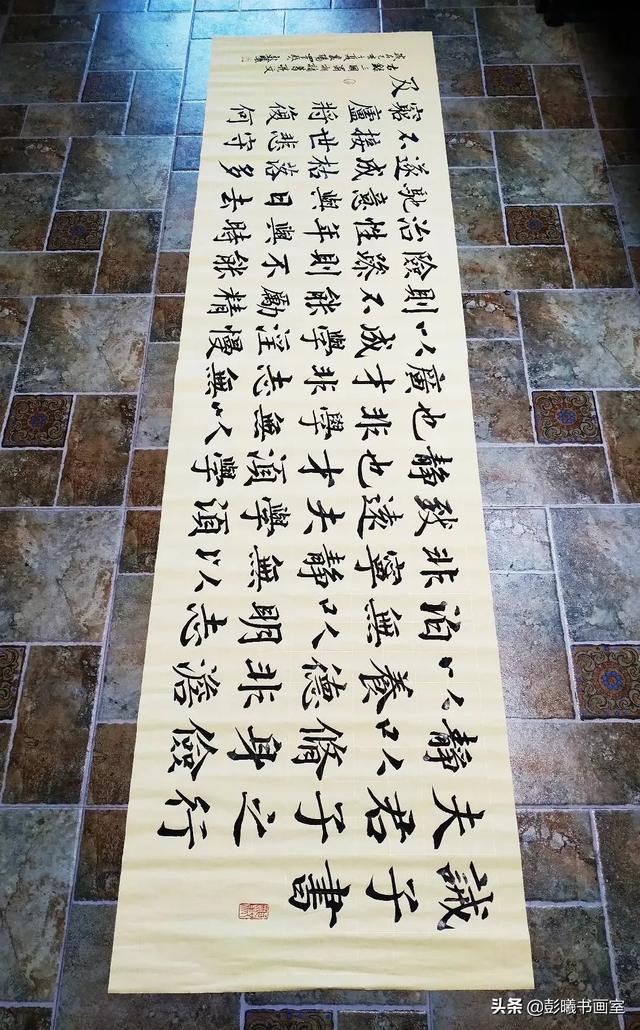 誡子書
夫君子之行
靜以脩身儉
以養德非澹
泊無以明志
非寧靜無以
致遠夫學須
靜也才須學
也非學無以
廣才非志無
以成學淫慢
則不能勵精
險躁則不能
治性年與時
馳意與日去
遂成枯落多
不接世悲守
窮廬將復何
及
头条 @彭曦书画室